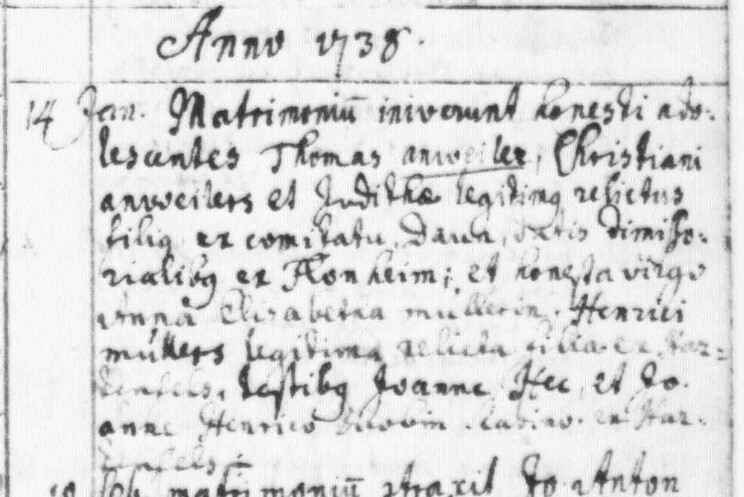 Anno 1738.
14 Jan. Matrimoniū iniverunt honesti ado-
lescentes Thomas anweiler, Christiani
anweilers et Judithæ legitimq relictus
filiq ex comitatu Daun, datis dimisso-
rialibq ex Flonheim; et honesta virgo
Anna Elisabetha müllerin, Henrici
müllers legitima relicta filia ex Har-
tenfels, testibq Joanne Hec, et Jo
anne Henrico ex Har-
tenfels
matrimoniū Jo. Anton